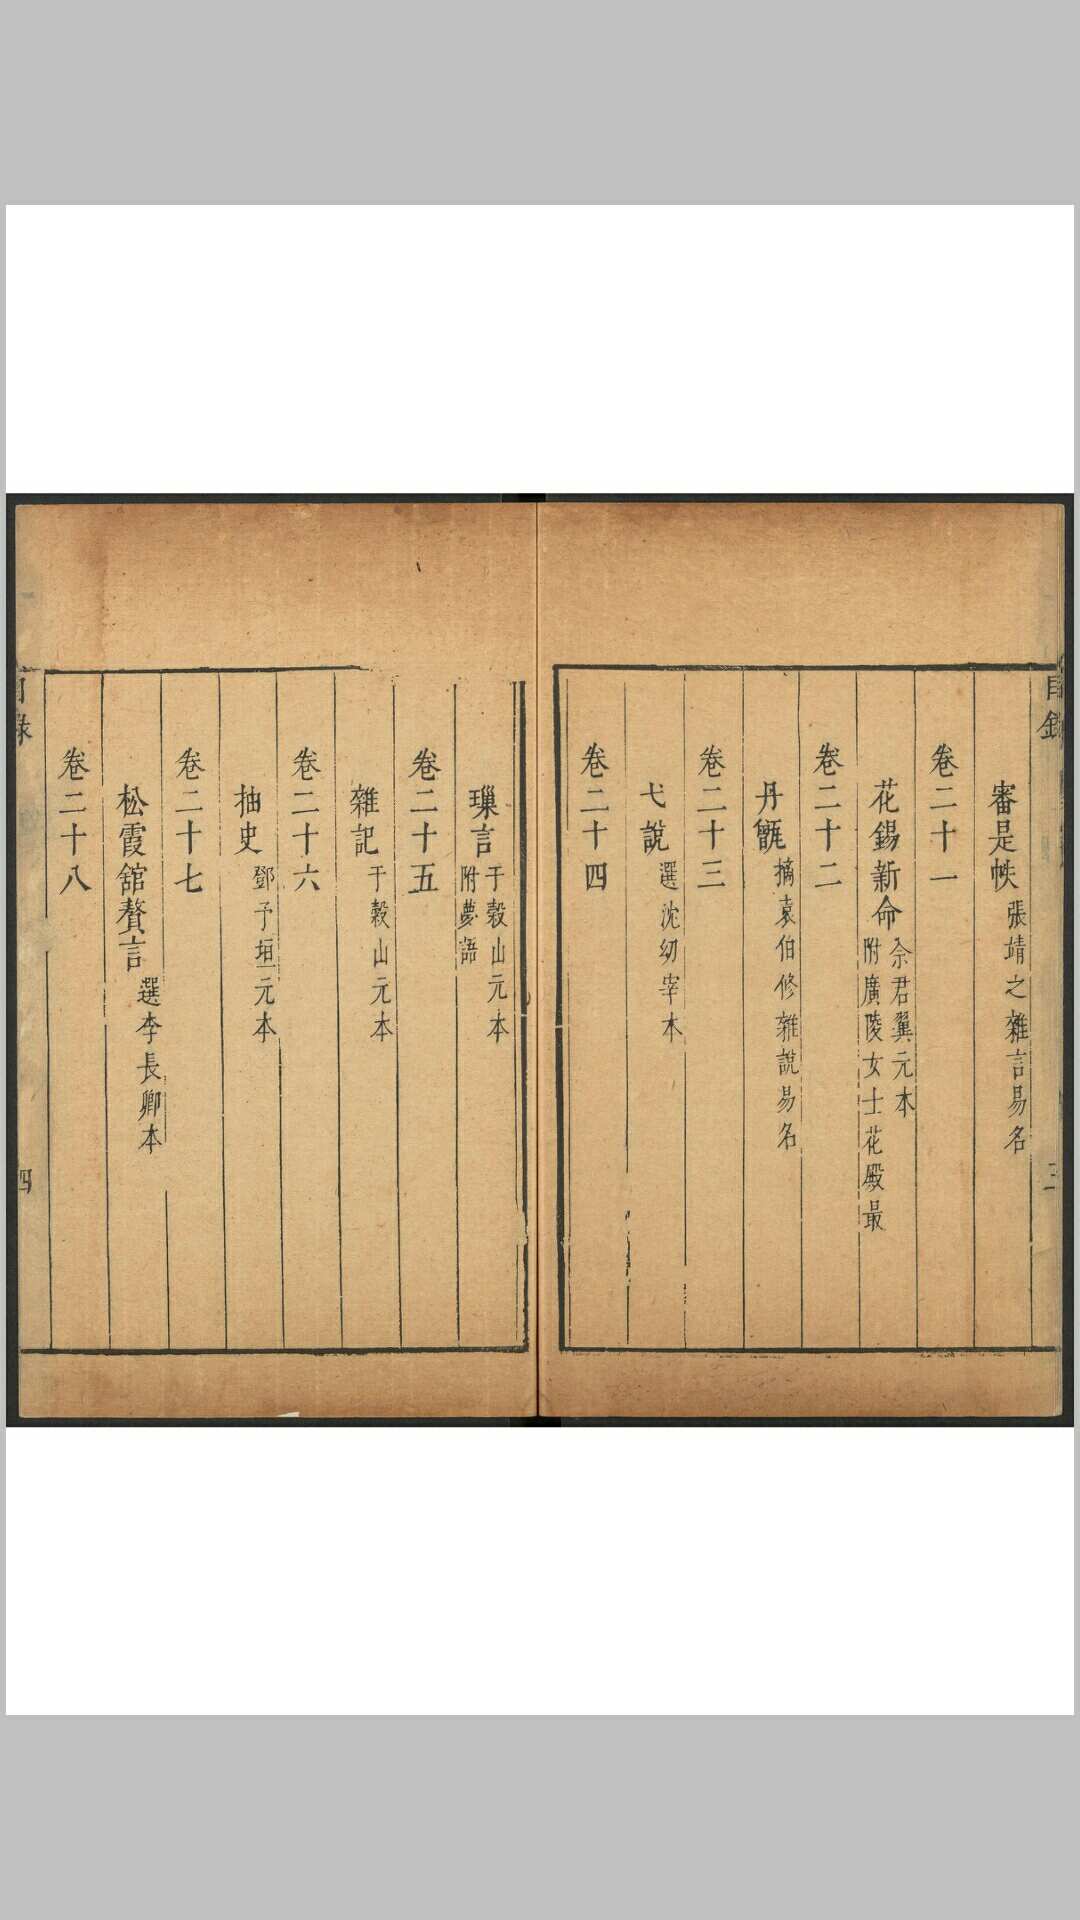 目錄
三
審是帙 張靖之雜言易名
卷二十一
花錫新命 余君翼元本
附廣陵女士花殿最
卷二十二
丹甑 摘袁伯修雜說易名
卷二十三
弋說 選沈幼宰本
卷二十四
璅言 于穀山元本
附夢語
卷二十五
雜記 于穀山元本
卷二十六
抽史 鄧予垣元本
卷二十七
松霞舘贅言 選李長卿本
卷二十八
目錄
四